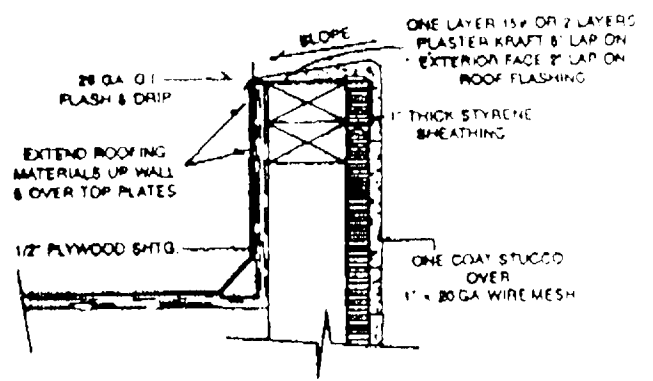 SLOPE
ONE LAYER 15# OR 2 LAYERS
PLASTER KRAFT 6" LAP ON
EXTERIOR FACE 2" LAP ON
ROOF FLASHING
26 GA. G.I.
FLASH & DRIP
1" THICK STYRENE
SHEATHING
EXTEND ROOFING
MATERIALS UP WALL
& OVER TOP PLATES
1/2" PLYWOOD SHTG.
ONE COAT STUCCO
OVER
1" x 20 GA WIRE MESH